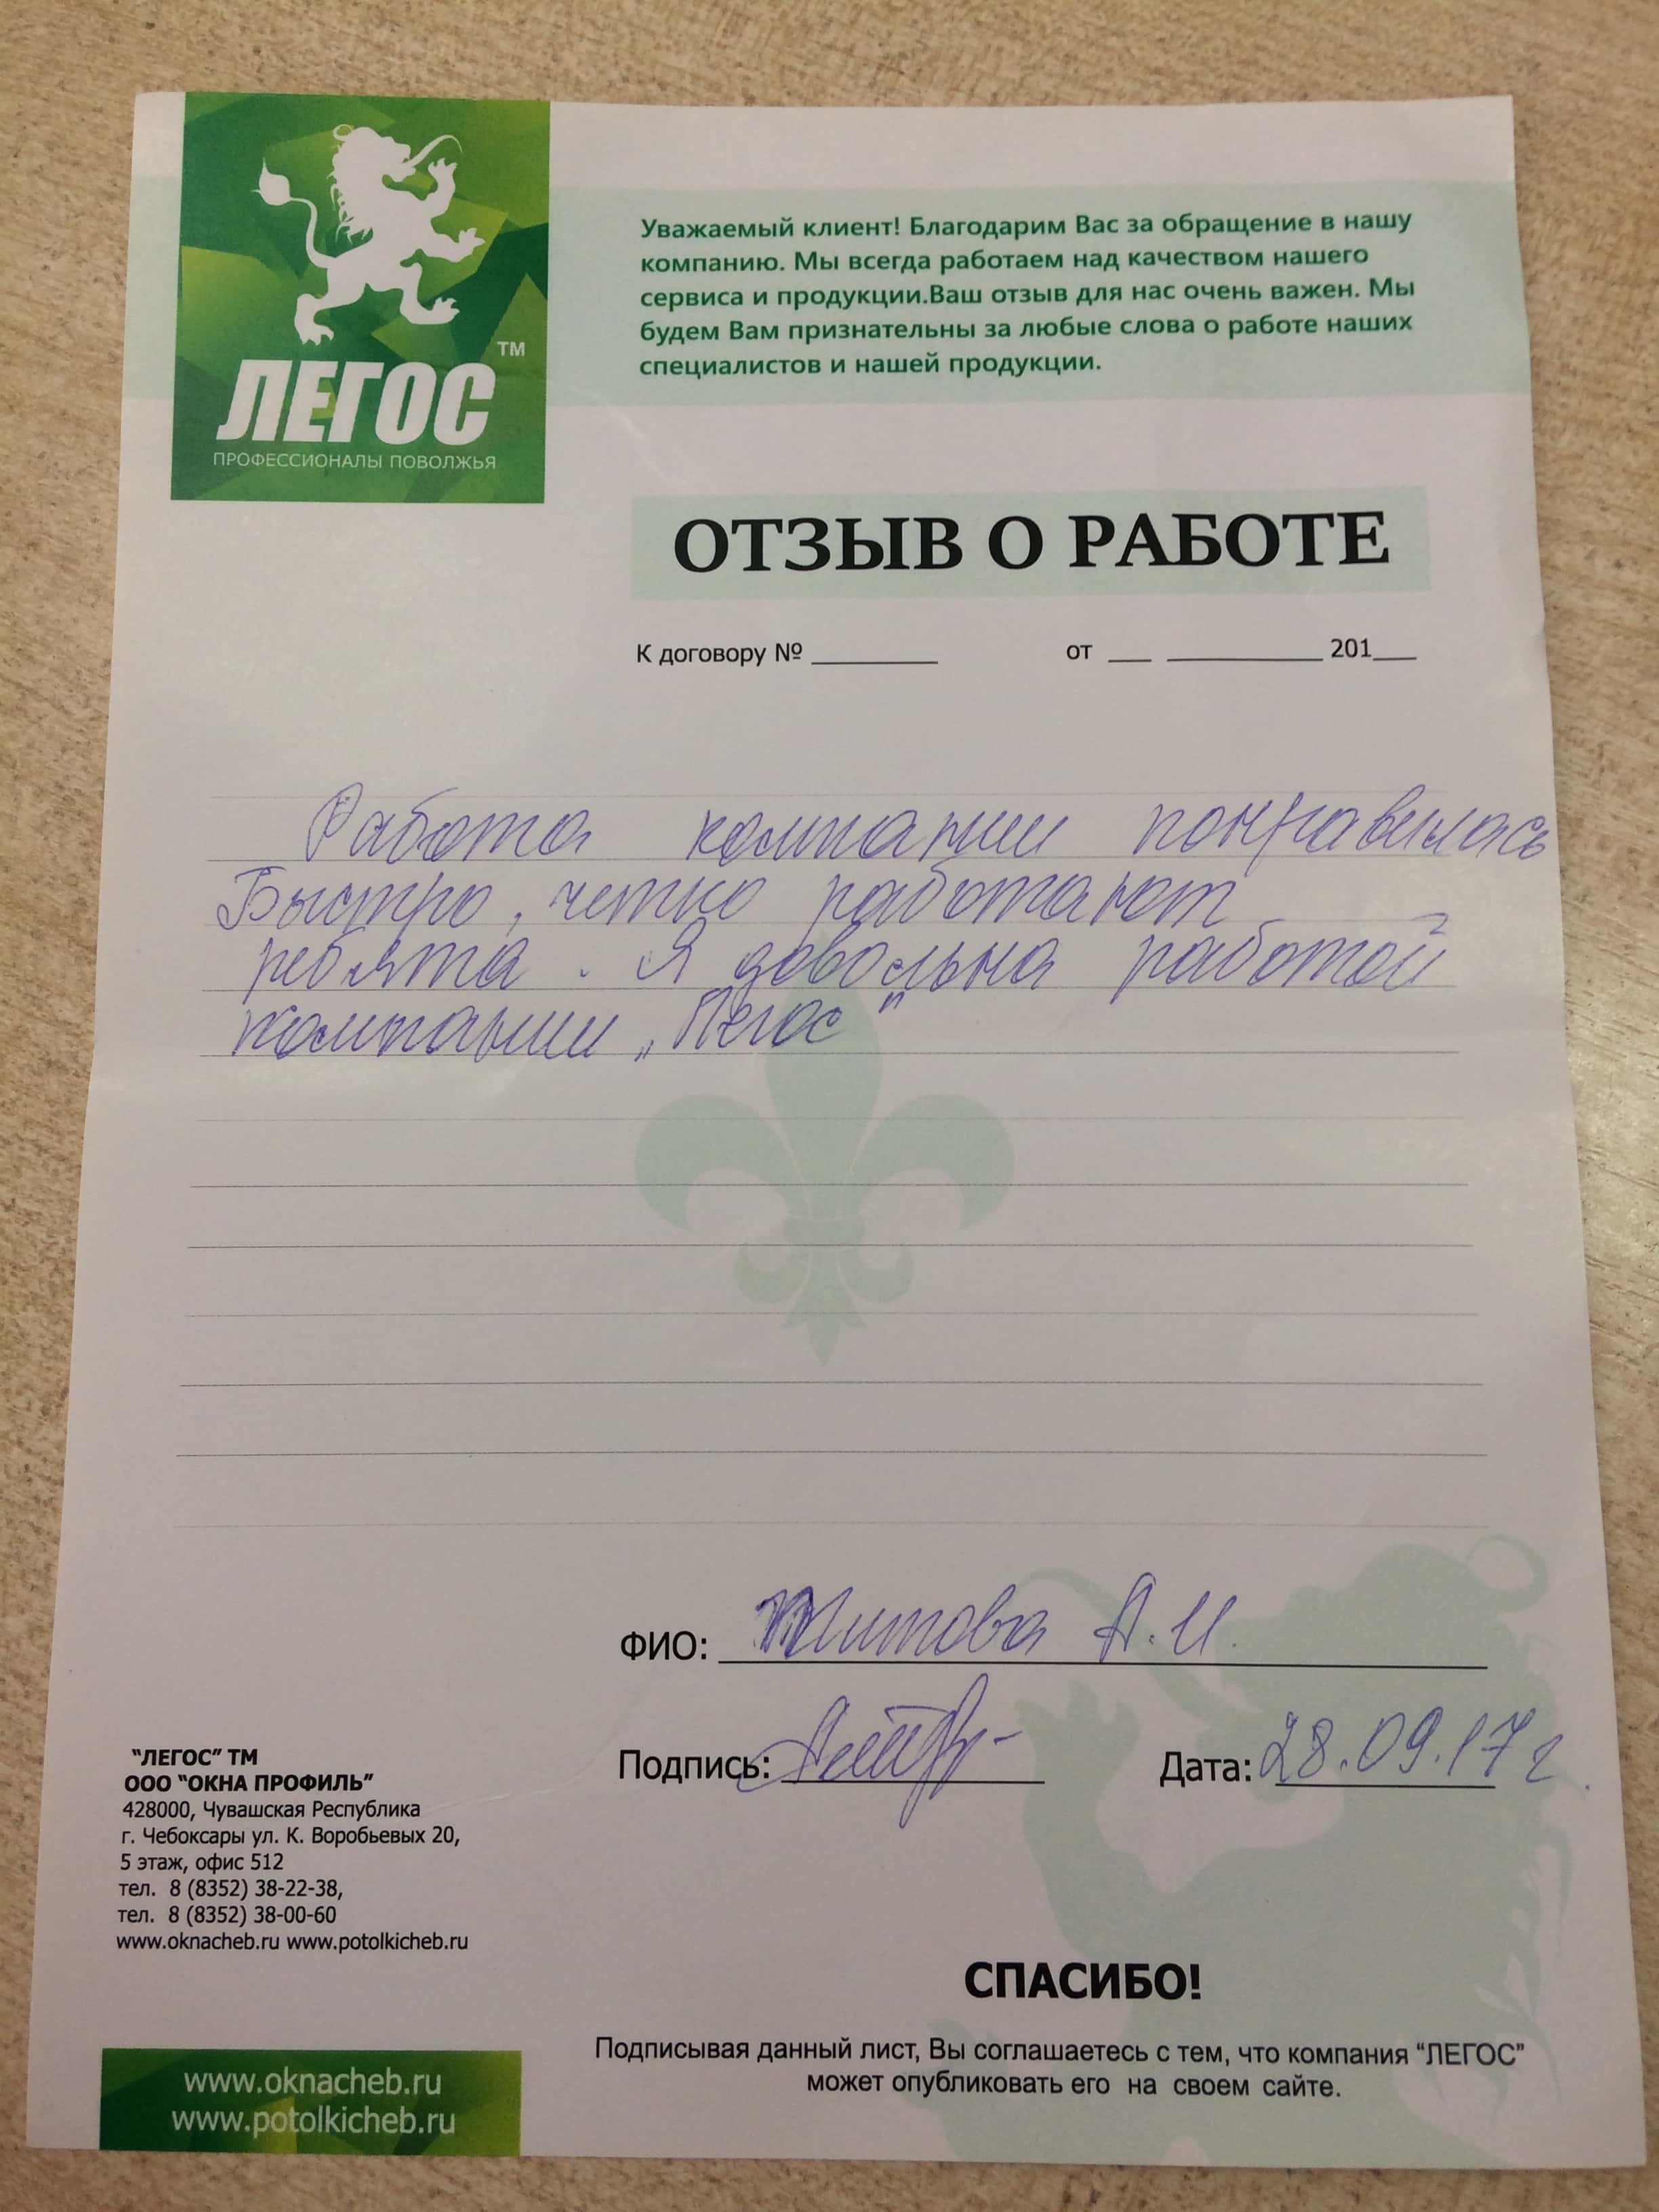 ЛЕГОС ТМ
ПРОФЕССИОНАЛЫ ПОВОЛЖЬЯ
Уважаемый клиент! Благодарим Вас за обращение в нашу
компанию. Мы всегда работаем над качеством нашего
сервиса и продукции.Ваш отзыв для нас очень важен. Мы
будем Вам признательны за любые слова о работе наших
специалистов и нашей продукции.
ОТЗЫВ О РАБОТЕ
К договору № ________ от ___ __________ 201___
Работа компании понравилась
Быстро, четко работают
ребята. Я довольна работой
компании „Легос"
ФИО: А.И.
Подпись: Дата: 28.09.17 г.
"ЛЕГОС" ТМ
ООО "ОКНА ПРОФИЛЬ"
428000, Чувашская Республика
г. Чебоксары ул. К. Воробьевых 20,
5 этаж, офис 512
тел. 8 (8352) 38-22-38,
тел. 8 (8352) 38-00-60
www.oknacheb.ru www.potolkicheb.ru
СПАСИБО!
Подписывая данный лист, Вы соглашаетесь с тем, что компания "ЛЕГОС"
может опубликовать его на своем сайте.
www.oknacheb.ru
www.potolkicheb.ru